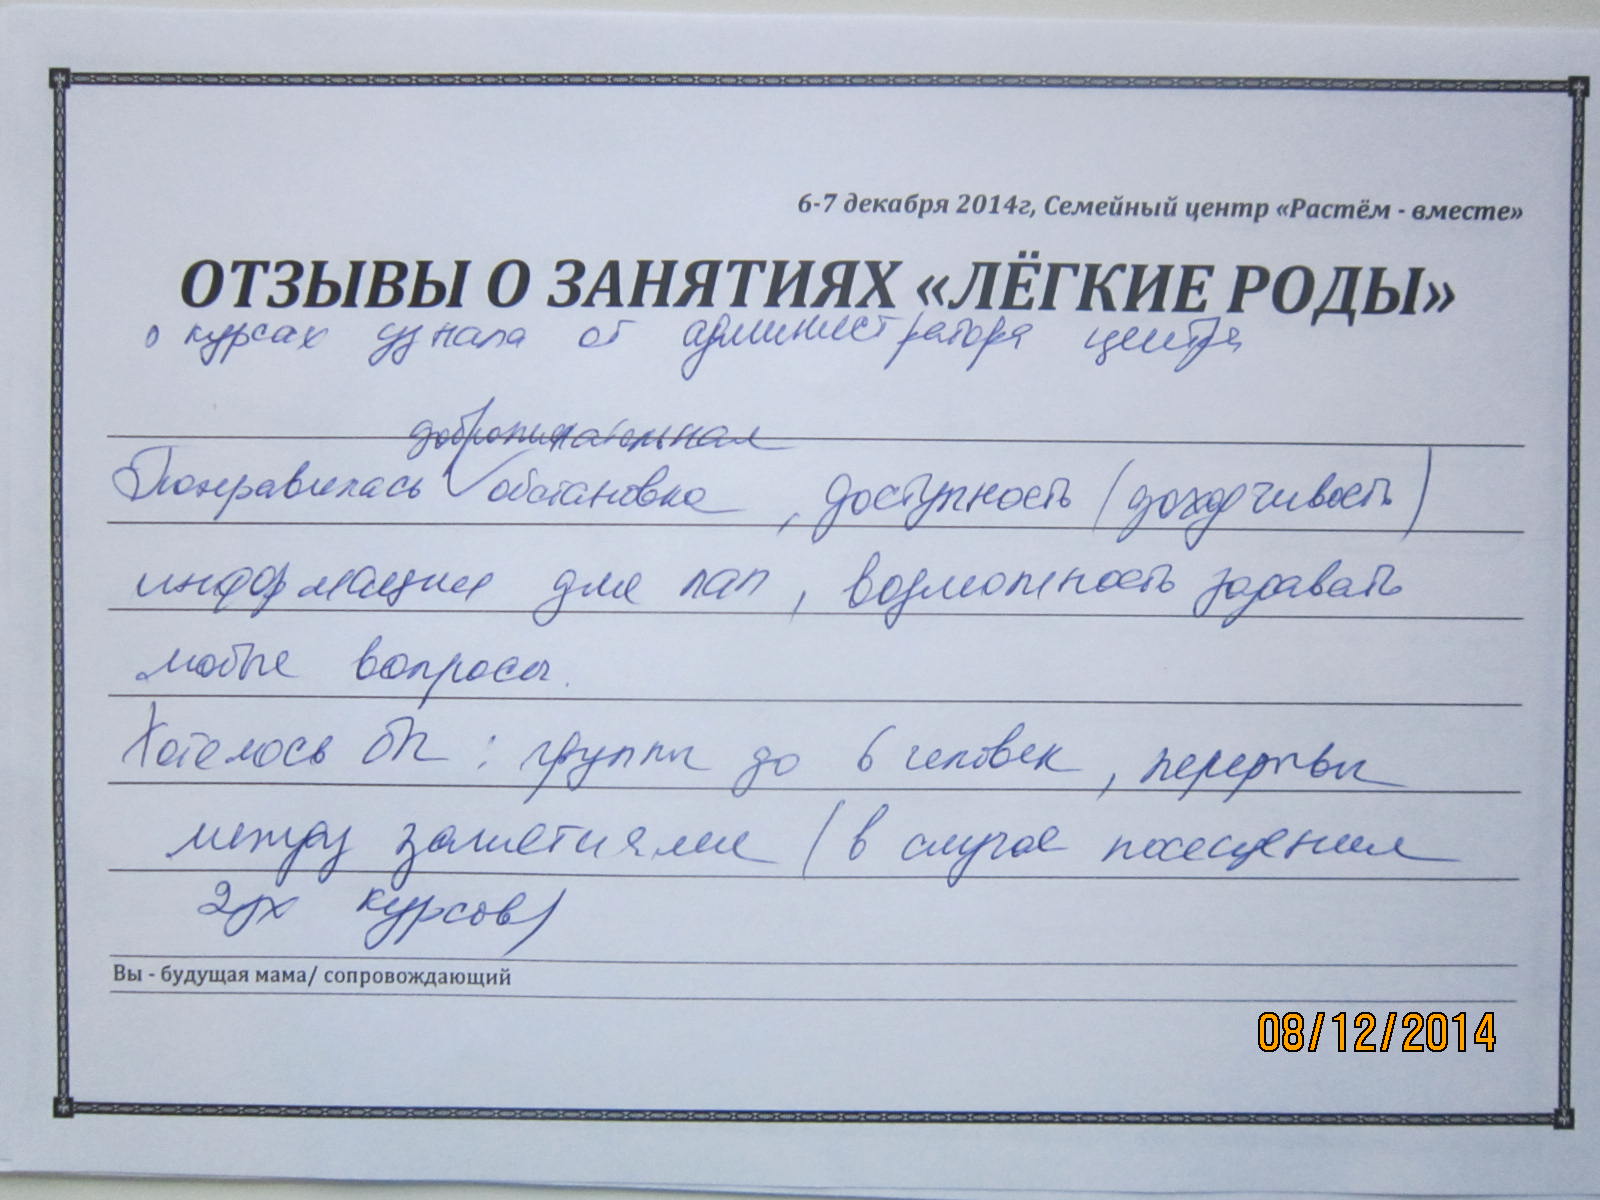 6-7 декабря 2014г, Семейный центр «Растём - вместе»
ОТЗЫВЫ О ЗАНЯТИЯХ «ЛЁГКИЕ РОДЫ»
о курсах узнала от администратора центра
доброжелательная
Понравилась обстановка, доступность (доходчивость)
информации для пап, возможность задавать
любые вопросы.
Хотелось бы: группы до 6 человек, перерывы
между занятиями (в случае посещения
2ух курсов)
Вы - будущая мама/ сопровождающий
08/12/2014